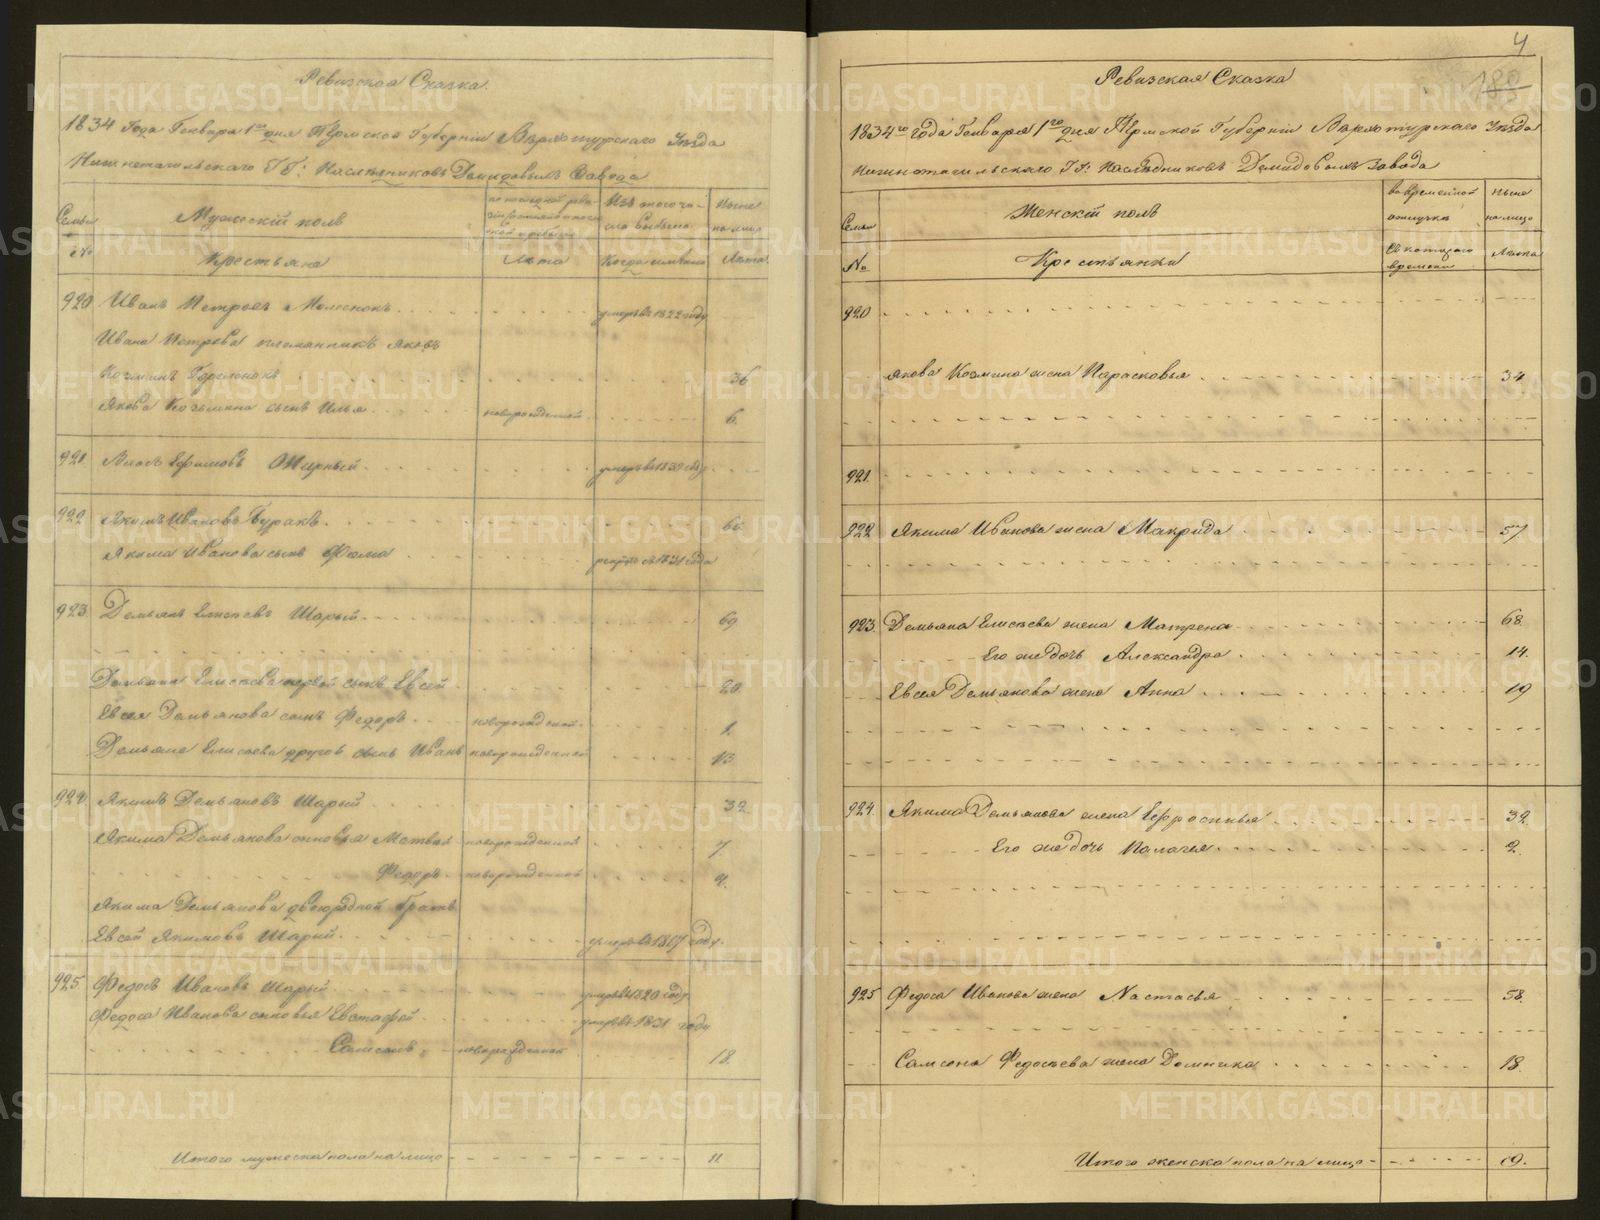 Ревизская Сказка
1834 Года Генваря 1го дня Пермской Губернiи Верхотурскаго Уезда
Нижнетагильскаго ГГ: Наследниковъ Демидовыхъ Завода
Семьи
Мужескiй полъ
по последней реви-
Изъ того чи-
сла выбыло
Ныне
на лицо
№
Крестьяне
Лета
Когда именно
Лета
920 Иванъ Петровъ
умеръ въ 1822 году
Ивана Петрова племянникъ Яковъ
Козминъ 36
Якова Козьмина сынъ Илья новорожденной 6.
921. Власъ Ефимовъ Жирный умеръ въ 1832 году
922 Якимъ Ивановъ Буракъ
Якима Иванова сынъ Фома рекрутъ съ 1831 года
923. Демьянъ Елисеевъ Шарый 69
Демьяна Елисеева первой сынъ Евсей 20.
Евсея Демьянова сынъ Федоръ новорожденной 1.
Демьяна Елисеева другой сынъ Иванъ новорожденной 13
924. Якимъ Демьяновъ Шарый 32
Якима Демьянова сыновья Матвей новорожденной 7.
Федоръ новорожденной 4.
Якима Демьянова двоюродной братъ
Евсей Якимовъ Шарый умеръ въ 1817 году.
925 Федосъ Ивановъ Шарый умеръ въ 1820 году
Федоса Иванова сыновья Евстафей умеръ въ 1831 году
Самсонъ новорожденной 18.
Итого мужеска пола на лицо 11
4
189
Ревизская Сказка
1834го года Генваря 1го дня Пермской Губернiи Верхотурскаго Уезда
Нижнетагильскаго ГГ: Наследниковъ Демидовыхъ Завода
Семьи
Женскiй полъ
во временной
отлучке
ныне
на лицо
№
Крестьянки
Съ котораго
времени
Лета
920
Якова Козмина жена Парасковья 34
921.
922 Якима Иванова жена Макрида 57
923 Демьяна Елисеева жена Матрена 68
Его же дочь Александра 14.
Евсея Демьянова жена Анна 19
924. Якима Демьянова жена Ефросинья 32.
Его же дочь Палагея 2.
925 Федоса Иванова жена Настасья 58.
Самсона Федосеева жена Домника 18.
Итого женска пола на лицо 9.
METRIKI.GASO-URAL.RU